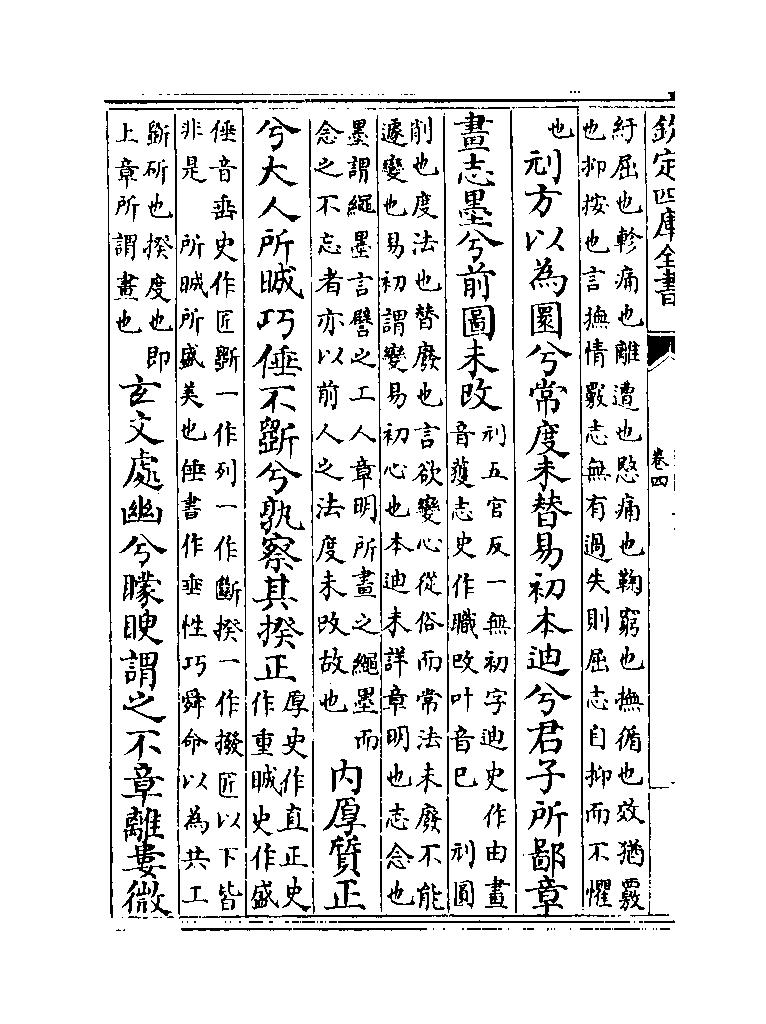 欽定四庫全書
卷四
紆屈也軫痛也離遭也愍痛也鞠窮也撫循也效猶覈
也抑按也言撫情覈志無有過失則屈志自抑而不懼
也
刓方以為圜兮常度未替易初本迪兮君子所鄙章
畫志墨兮前圖未改
刓五官反一無初字迪史作由畫
音獲志史作職改叶音已 刓圓
削也度法也替廢也言欲變心從俗而常法未廢不能
遽變也易初謂變易初心也本迪未詳章明也志念也
墨謂繩墨言譬之工人章明所畫之繩墨而
念之不忘者亦以前人之法度未改故也
內厚質正
兮大人所晠巧倕不斵兮孰察其揆正
厚史作直正史
作重晠史作盛
倕音垂史作匠斵一作列一作斷揆一作撥匠以下皆
非是 所晠所盛美也倕書作垂性巧舜命以為共工
斵斫也揆度也即
上章所謂畫也
玄文處幽兮矇瞍謂之不章離婁微